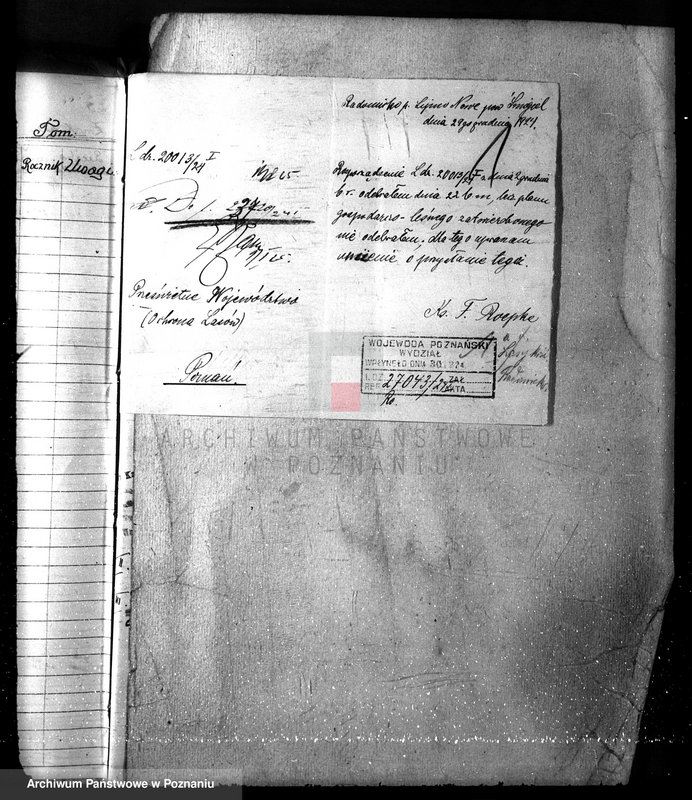 Tom.
Rocznik Uwagi
L. dz. 20013/24 I
Prześwietne Województwo
(Ochrona Lasów)
Poznań.
Radomicko p. Lipno Nowe pow. Śmigiel
dnia 29go grudnia 1924.
Rozporządzenie L. dz. 20013/24 I z dnia 2 grudnia
b. r. odebrałem dnia 22 b. m., lecz planu
gospodarczo-leśnego zatwierdzonego
nie odebrałem, dlatego upraszam
o przysłanie tegoż.
Ks. F. Roepke
WOJEWODA POZNAŃSKI
WYDZIAŁ
WPŁYNĘŁO DNIA 30.12.24
L. DZ. 27043/24 ZAŁ.
REF. AKTA
ARCHIWUM PAŃSTWOWE
W POZNANIU
Archiwum Państwowe w Poznaniu